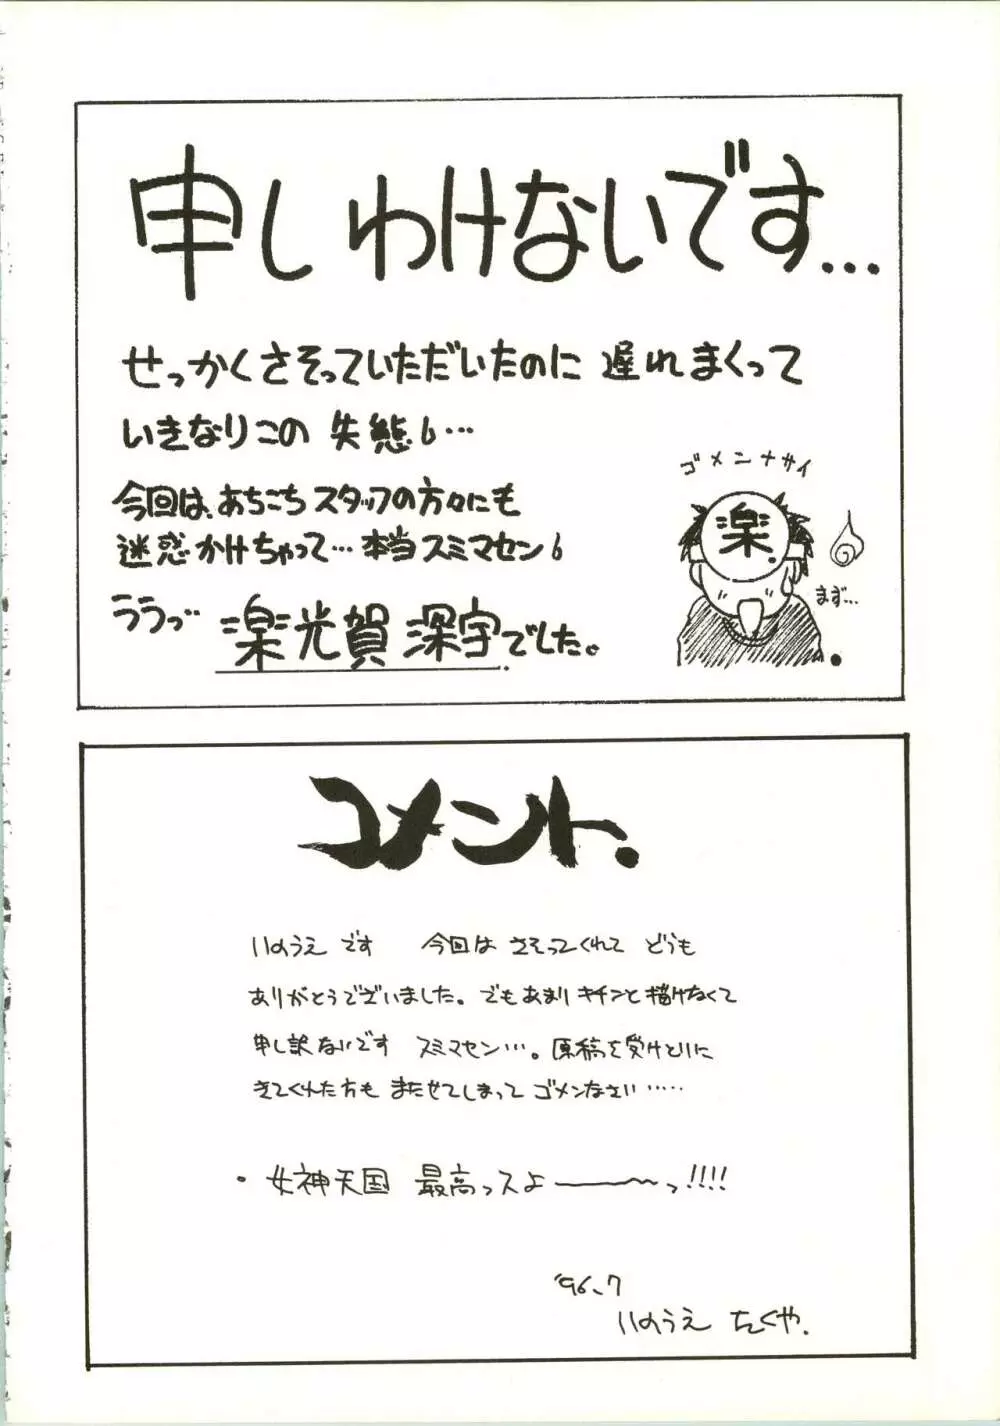 申しわけないです...
せっかくさそっていただいたのに 遅れまくって
いきなりこの 失態...
今回は、あちこちスタッフの方々にも
迷惑かけちゃって...本当スミマセン
ゴメンナサイ
楽
まず...
楽光賀 深宇でした。
コメント.
いのうえ です 今回は さそってくれて どうも
ありがとうございました。でもあまり キチンと描けなくて
申し訳ないです スミマセン...。原稿を受けとりに
きてくれた方も またせてしまって ゴメンなさい……
・女神天国 最高っスよ――〜っ!!!!
'96.7
いのうえ たくや.